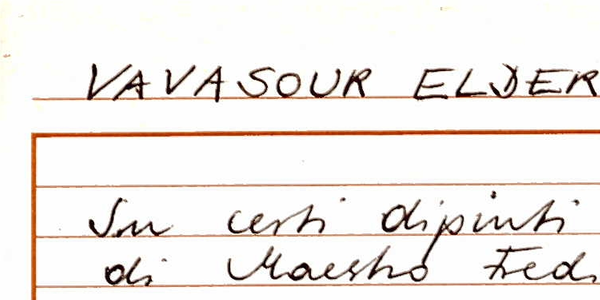 VAVASOUR ELDER
Su certi dipinti
di Maestro Fedi